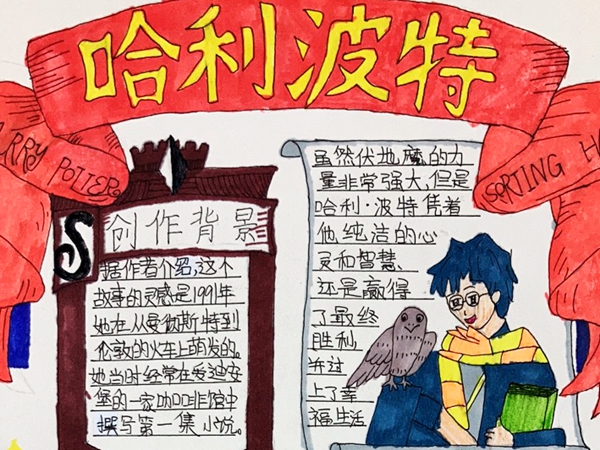 哈利波特
ARRY POTTER
SORTING H
S
创作背景
据作者介绍,这个
故事的灵感是1991年
她在从曼彻斯特到
伦敦的火车上萌发的。
她当时经常在爱迪安
堡的一家咖啡馆中
撰写第一集小说。
虽然伏地魔的力
量非常强大,但是
哈利·波特凭着
他纯洁的心
灵和智慧、
还是赢得
了最终
胜利,
并过
上了幸
福生活